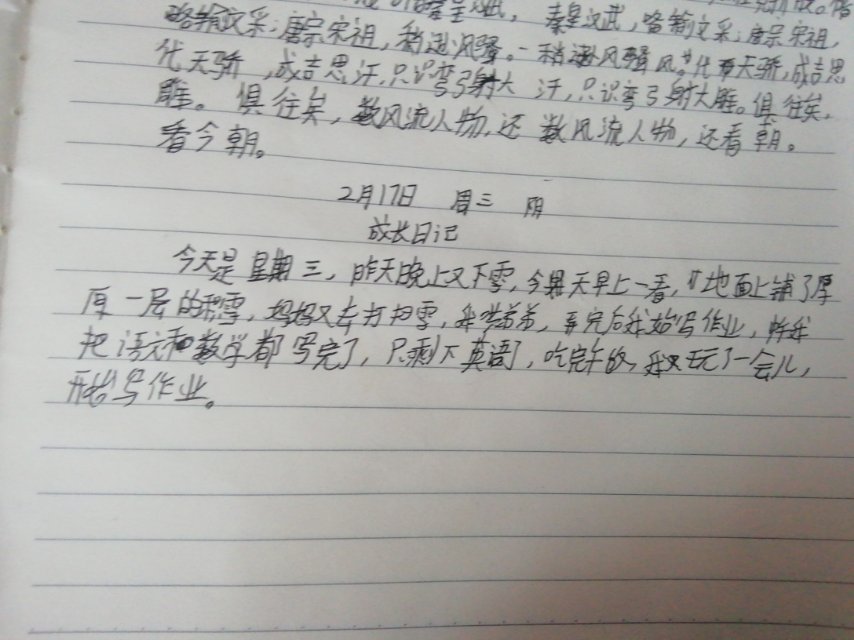 秦皇汉武,略输文采;唐宗宋祖,
略输文采;唐宗宋祖,稍逊风骚。一稍逊风骚风。"代天骄,成吉思
代天骄,成吉思汗,只识弯弓射大 汗,只识弯弓射大雕。俱往矣,
雕。俱往矣,数风流人物,还 数风流人物,还看朝。
看今朝。
2月17日 周三 阴
成长日记
今天是星期三,昨天晚上又下雪,今天早上一看,地面上铺了厚
厚一层的积雪,妈妈又去打扫雪,我哄弟弟,弄完后我始写作业,我
把语文和数学都写完了,只剩下英语了,吃完午饭,我又玩了一会儿,
开始写作业。